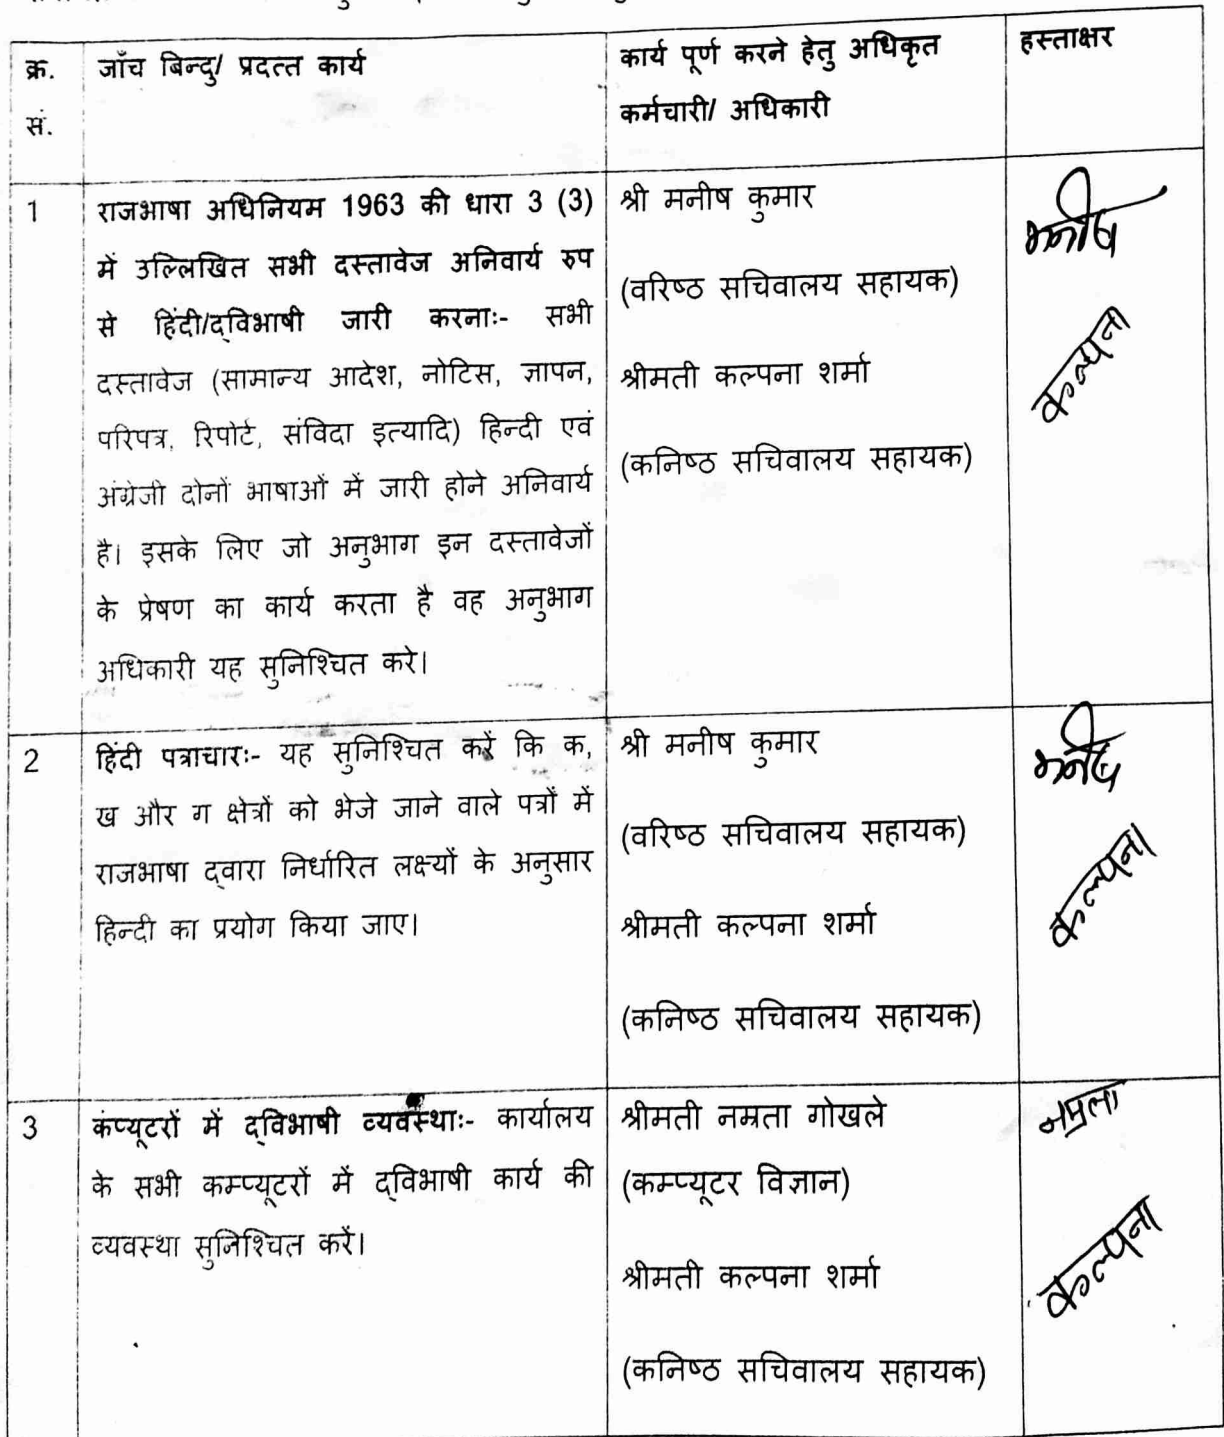 क्र.
सं.
जाँच बिन्दु/ प्रदत्त कार्य
कार्य पूर्ण करने हेतु अधिकृत
कर्मचारी/ अधिकारी
हस्ताक्षर
1
राजभाषा अधिनियम 1963 की धारा 3 (3)
में उल्लिखित सभी दस्तावेज अनिवार्य रुप
से हिंदी/द्विभाषी जारी करनाः- सभी
दस्तावेज (सामान्य आदेश, नोटिस, ज्ञापन,
परिपत्र, रिपोर्ट, संविदा इत्यादि) हिन्दी एवं
अंग्रेजी दोनों भाषाओं में जारी होने अनिवार्य
है। इसके लिए जो अनुभाग इन दस्तावेजों
के प्रेषण का कार्य करता है वह अनुभाग
अधिकारी यह सुनिश्चित करे।
श्री मनीष कुमार
(वरिष्ठ सचिवालय सहायक)
श्रीमती कल्पना शर्मा
(कनिष्ठ सचिवालय सहायक)
मनीष
कल्पना
2
हिंदी पत्राचारः- यह सुनिश्चित करें कि क,
ख और ग क्षेत्रों को भेजे जाने वाले पत्रों में
राजभाषा द्वारा निर्धारित लक्ष्यों के अनुसार
हिन्दी का प्रयोग किया जाए।
श्री मनीष कुमार
(वरिष्ठ सचिवालय सहायक)
श्रीमती कल्पना शर्मा
(कनिष्ठ सचिवालय सहायक)
मनीष
कल्पना
3
कंप्यूटरों में द्विभाषी व्यवस्थाः- कार्यालय
के सभी कम्प्यूटरों में द्विभाषी कार्य की
व्यवस्था सुनिश्चित करें।
श्रीमती नम्रता गोखले
(कम्प्यूटर विज्ञान)
श्रीमती कल्पना शर्मा
(कनिष्ठ सचिवालय सहायक)
नम्रता
कल्पना